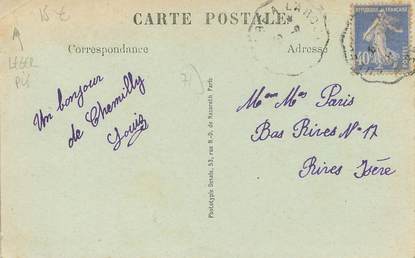 15 €
CARTE POSTALE
Correspondance
Adresse
LEGER
PLI
7)
Un bonjour
de Chemilly
Louis
Phototypie Dorale, 53, rue N.-D. de Nazareth Paris
REPUBLIQUE FRANÇAISE
Mme Mes Paris
Bas Rives N° 17
Rives Isère